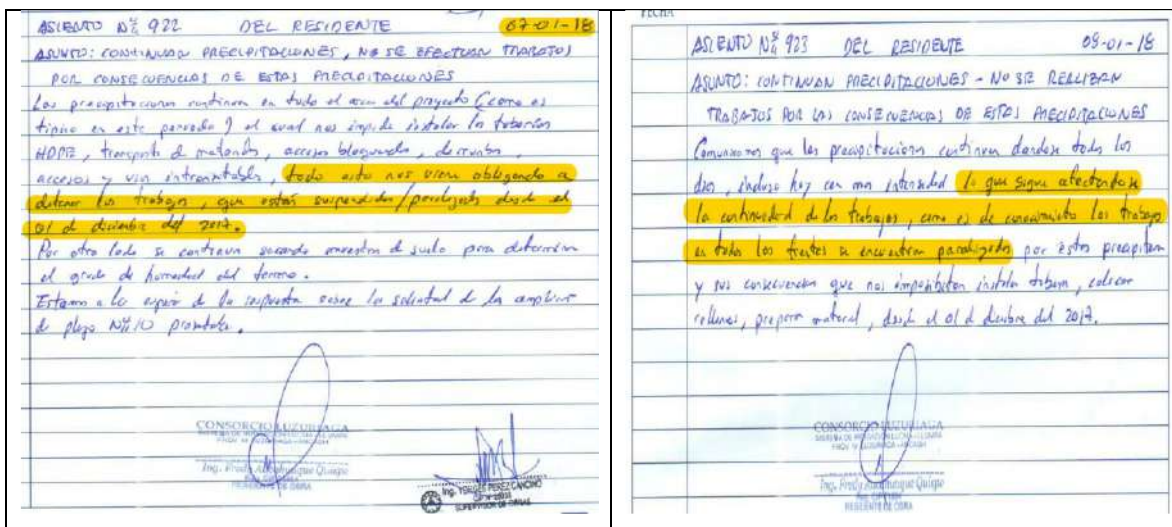 ASIENTO Nº 922 DEL RESIDENTE 07-01-18
ASUNTO: CONTINUAN PRECIPITACIONES, NO SE EFECTUAN TRABAJOS
POR CONSECUENCIAS DE ESTAS PRECIPITACIONES
Las precipitaciones continuan en todo el area del proyecto (como es
tipico en este periodo) el cual nos impide instalar las tuberias
HDPE, transporte de materiales, accesos bloqueados, derrumbes,
accesos y vias intransitables, todo esto nos viene obligando a
detener los trabajos, que estan suspendidos/paralizados desde el
01 de diciembre del 2017.
Por otro lado se continua sacando muestras de suelo para determinar
el grado de humedad del terreno.
Estamos a la espera de la respuesta sobre la solicitud de la ampliacion
de plazo Nº10
CONSORCIO LUZURIAGA
RESIDENTE DE OBRA
Ing. YERGES PEREZ CANCINO
SUPERVISOR DE OBRAS
FECHA
ASIENTO Nº 923 DEL RESIDENTE 08-01-18
ASUNTO: CONTINUAN PRECIPITACIONES - NO SE REALIZAN
TRABAJOS POR LAS CONSECUENCIAS DE ESTAS PRECIPITACIONES
Comunicamos que las precipitaciones continuan dandose todos los
dias, incluso hoy con mas intensidad lo que sigue afectandose
la continuidad de los trabajos, como es de conocimiento los trabajos
en todos los frentes se encuentran paralizados por estas precipitaciones
y sus consecuencias que nos imposibilitan instalar tuberia, colocar
rellenos, preparar material, desde el 01 de diciembre del 2017.
CONSORCIO LUZURIAGA
RESIDENTE DE OBRA